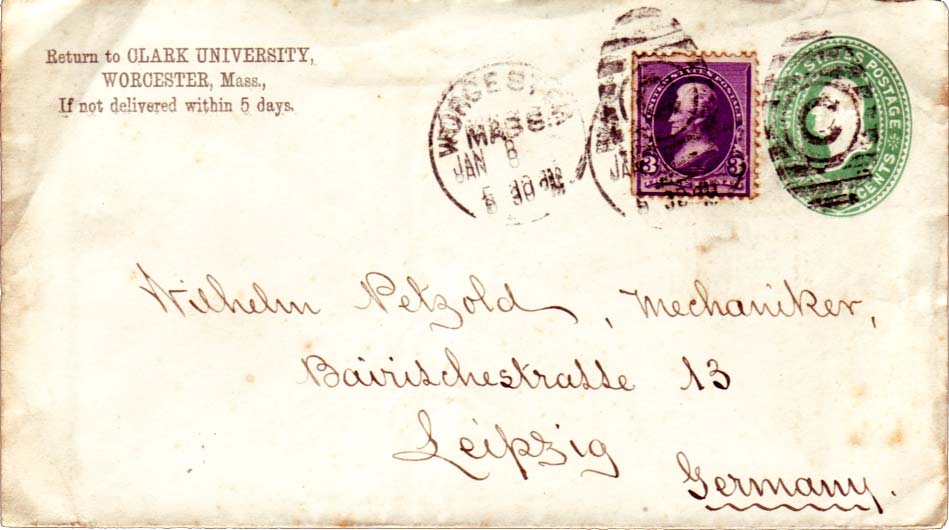 Return to CLARK UNIVERSITY,
WORCESTER, Mass.,
If not delivered within 5 days.
MASS.
JAN 8
5 30 PM
UNITED STATES POSTAGE
3 3
STATES POSTAGE
CENTS
C
Wilhelm Petzold, Mechaniker,
Bairischestrasse 13
Leipzig
Germany.